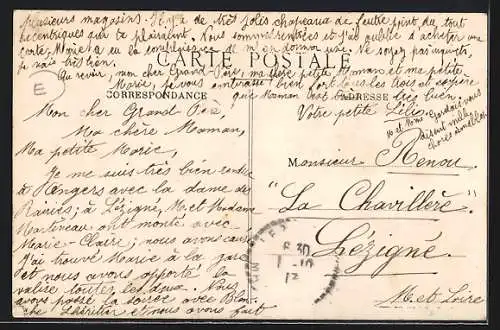 plusieurs magasins. Il y a de très jolis chapeaux de feutre point du tout
excentriques qui te plairaient. Nous sommes rentrées et j'ai oublié d'acheter une
carte, Marie a eu la complaisance de m'en donner une. Ne soyez pas inquiets,
je vais très bien.
Au revoir, mon cher Grand-Père, ma chère petite Maman et ma petite
Marie, je vous embrasse bien fort tous les trois et espère
que Maman va bien.
CARTE POSTALE
CORRESPONDANCE
ADRESSE
Votre petite Lili
M et Mme Gardais vous
disent mille
choses aimables.
Mon cher Grand-Père,
Ma chère Maman,
Ma petite Marie,
Je me suis très bien
d'Angers avec la dame de
à Lézigné, M. et Madame
Martineau ont monté avec
Marie-Claire; nous avons causé.
J'ai trouvé Marie à la gare
et nous avons apporté la
valise toutes les deux. Nous
avons passé la soirée avec Blanche
et nous avons fait
Monsieur Renou
"La Chavillère"
Lézigné.
M. et Loire
E